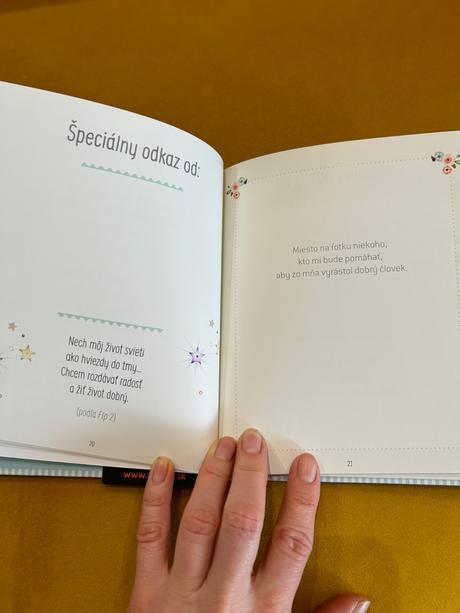 Špeciálny odkaz od:
Nech môj život svieti
ako hviezdy do tmy...
Chcem rozdávať radosť
a žiť život dobrý.
(podľa Flp 2)
20
Miesto na fotku niekoho,
kto mi bude pomáhať,
aby zo mňa vyrástol dobrý človek.
21
www.